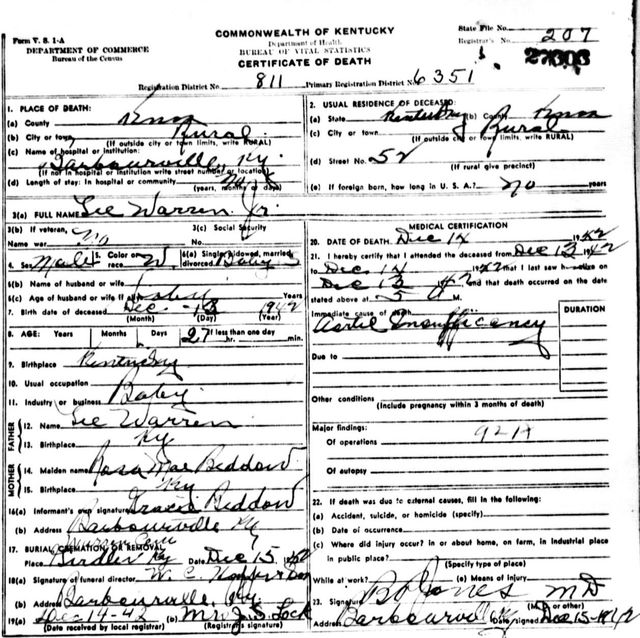 Form V. S. 1-A
DEPARTMENT OF COMMERCE
Bureau of the Census
COMMONWEALTH OF KENTUCKY
Department of Health
BUREAU OF VITAL STATISTICS
CERTIFICATE OF DEATH
State File No.
Registrar's No. 207
27303
Registration District No. 811 Primary Registration District No. 6351
1. PLACE OF DEATH:
(a) County Knox
(b) City or town Rural
(If outside city or town limits, write RURAL)
(c) Name of hospital or institution:
Barbourville, Ky.
(If not in hospital or institution write street number or location)
(d) Length of stay: In hospital or community
(years, months or days)
2. USUAL RESIDENCE OF DECEASED:
(a) State Kentucky (b) County Knox
(c) City or town Rural
(If outside city or town limits, write RURAL)
(d) Street No. 52
(If rural give precinct)
(e) If foreign born, how long in U. S. A.? no years
3(a) FULL NAME Lee Warren Jr.
3(b) If veteran, Name war No
3(c) Social Security No.
4. Sex Male 5. Color or race W. 6(a) Single, widowed, married, divorced Baby
6(b) Name of husband or wife
6(c) Age of husband or wife if Baby Years
7. Birth date of deceased Dec. 13 1942
(Month) (Day) (Year)
8. AGE: Years Months Days If less than one day
27 hr. min.
9. Birthplace Kentucky
10. Usual occupation
11. Industry or business Baby
FATHER
12. Name Lee Warren
13. Birthplace Ky
MOTHER
14. Maiden name Rosa Mae Beddow
15. Birthplace Ky
16(a) Informant's own signature Gracie Beddow
(b) Address Barbourville Ky
17. BURIAL, CREMATION, OR REMOVAL
Place Ky Date Dec 15 1942
18(a) Signature of funeral director W. C.
(b) Address Barbourville, Ky.
19(a) Dec-14-42 Mrs. J. S. Lock
(Date received by local registrar) (Registrar's signature)
MEDICAL CERTIFICATION
20. DATE OF DEATH Dec 14 1942
21. I hereby certify that I attended the deceased from Dec 13 1942
to Dec 14 1942 that I last saw h alive on
Dec 13 42 and that death occurred on the date
stated above at 5 A M.
Immediate cause of death
Aortic Insufficiency
DURATION
Due to
Other conditions
(Include pregnancy within 3 months of death)
Major findings:
Of operations 92A
Of autopsy
22. If death was due to external causes, fill in the following:
(a) Accident, suicide, or homicide (specify)
(b) Date of occurrence
(c) Where did injury occur? in or about home, on farm, in industrial place
in public place?
(Specify type of place)
While at work? (e) Means of injury
23. Signature Jones MD
(M. D. or other)
Address Barbourville Ky Date signed Dec 15-1942